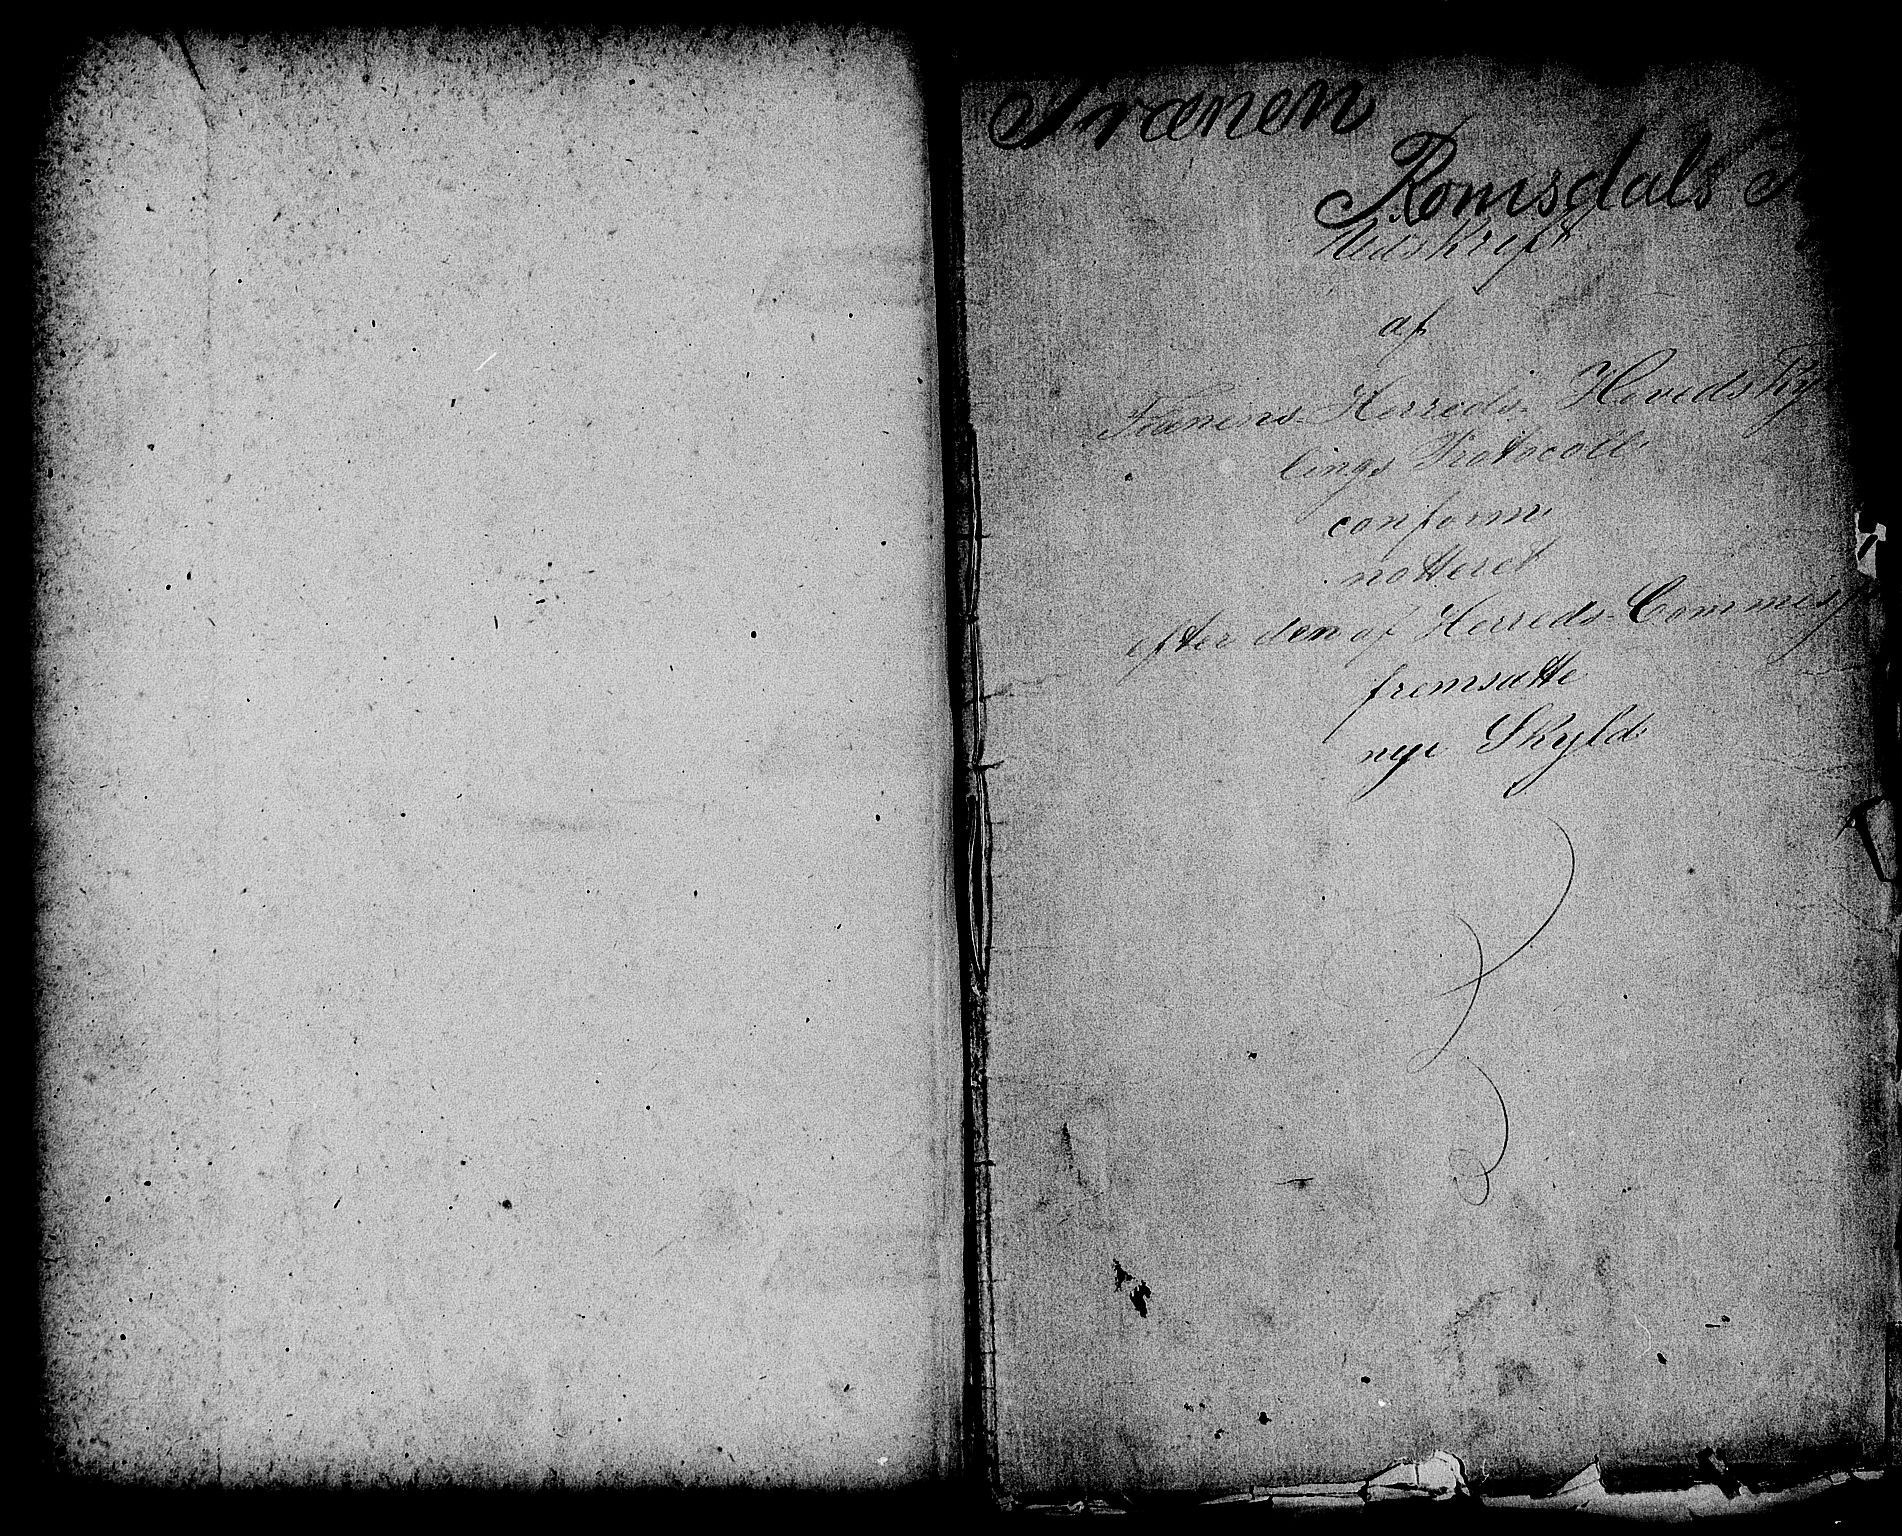 Frænen
Romsdals
Udskrift
af
Frænens Herreds Hovedsky
lings Protocoll
conform
notteret
efter den af Herreds-Commisſ
fremsatte
nye Skyld